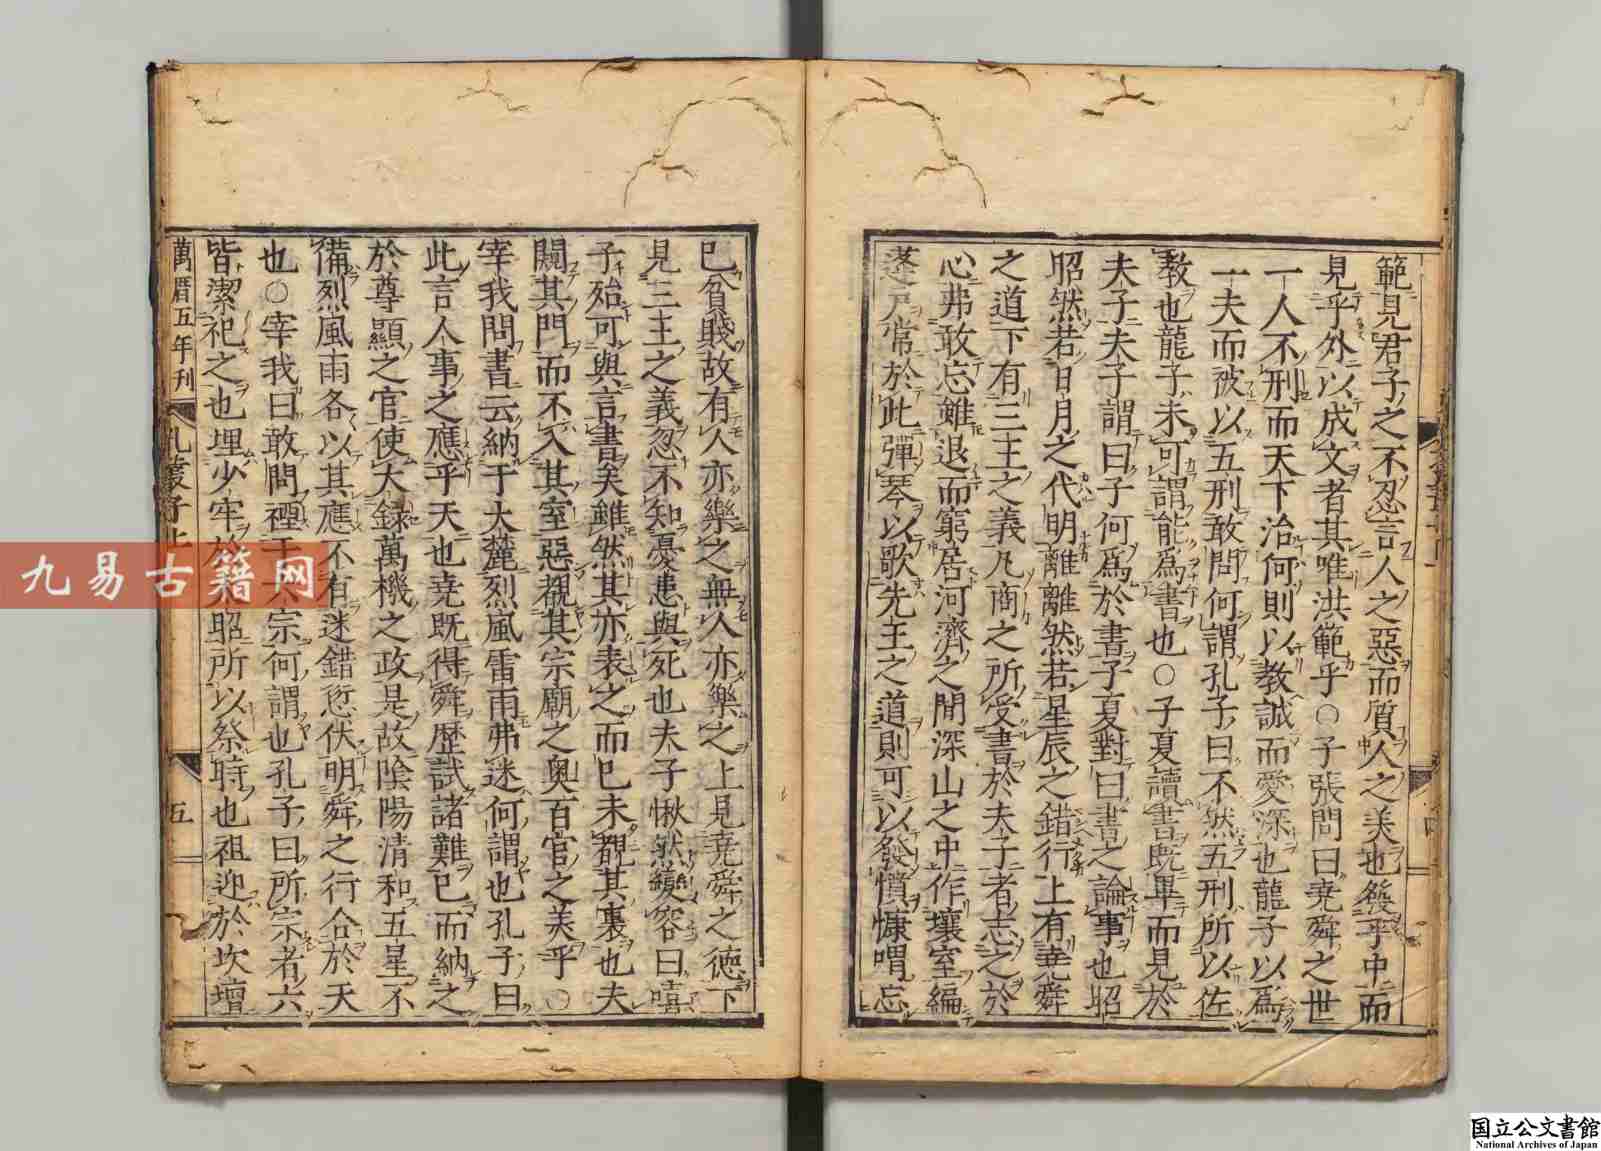 範見君子之不忍言人之惡而質人之美也發乎中而
見乎外以成文者其唯洪範乎○子張問曰堯舜之世
一人不刑而天下治何則以教誠而愛深也龍子以爲
一夫而被以五刑敢問何謂孔子曰不然五刑所以佐
教也龍子未可謂能爲書也○子夏讀書既畢而見於
夫子夫子謂曰子何爲於書子夏對曰書之論事也昭
昭然若日月之代明離離然若星辰之錯行上有堯舜
之道下有三王之義凡商之所受書於夫子者志之於
心弗敢忘雖退而窮居河濟之間深山之中作壤室編
蓬戸常於此彈琴以歌先王之道則可以發憤慷喟忘
己貧賤故有人亦樂之無人亦樂之上見堯舜之德下
見三王之義忽不知憂患與死也夫子愀然變容曰嘻
子殆可與言書矣雖然其亦表之而已未覩其裏也夫
闚其門而不入其室惡覩其宗廟之奧百官之美乎○
宰我問書云納于大麓烈風雷雨弗迷何謂也孔子曰
此言人事之應乎天也堯既得舜歷試諸難已而納之
於尊顯之官使大録萬機之政是故陰陽清和五星不
備烈風雨各以其應不有迷錯愆伏明舜之行合於天
也○宰我曰敢問禋于六宗何謂也孔子曰所宗者六
皆潔祀之也埋少牢於昭所以祭時也祖迎於坎壇
萬曆五年刊 孔叢子上 五
九易古籍网
国立公文書館
National Archives of Japan